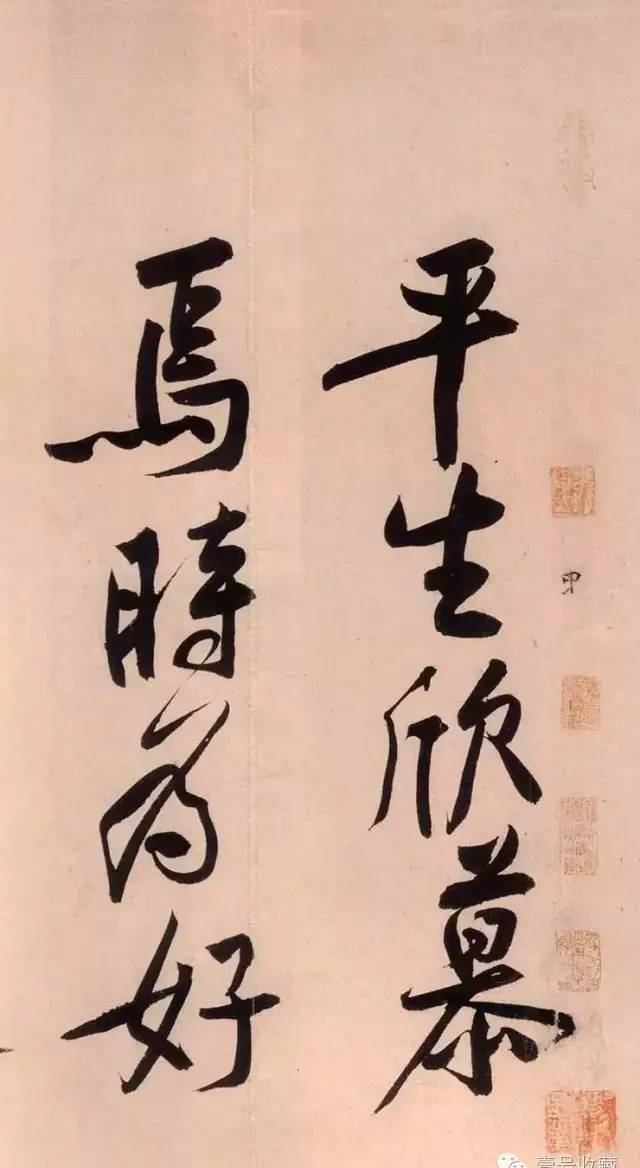 平生欣慕
焉時為好
壹号收藏